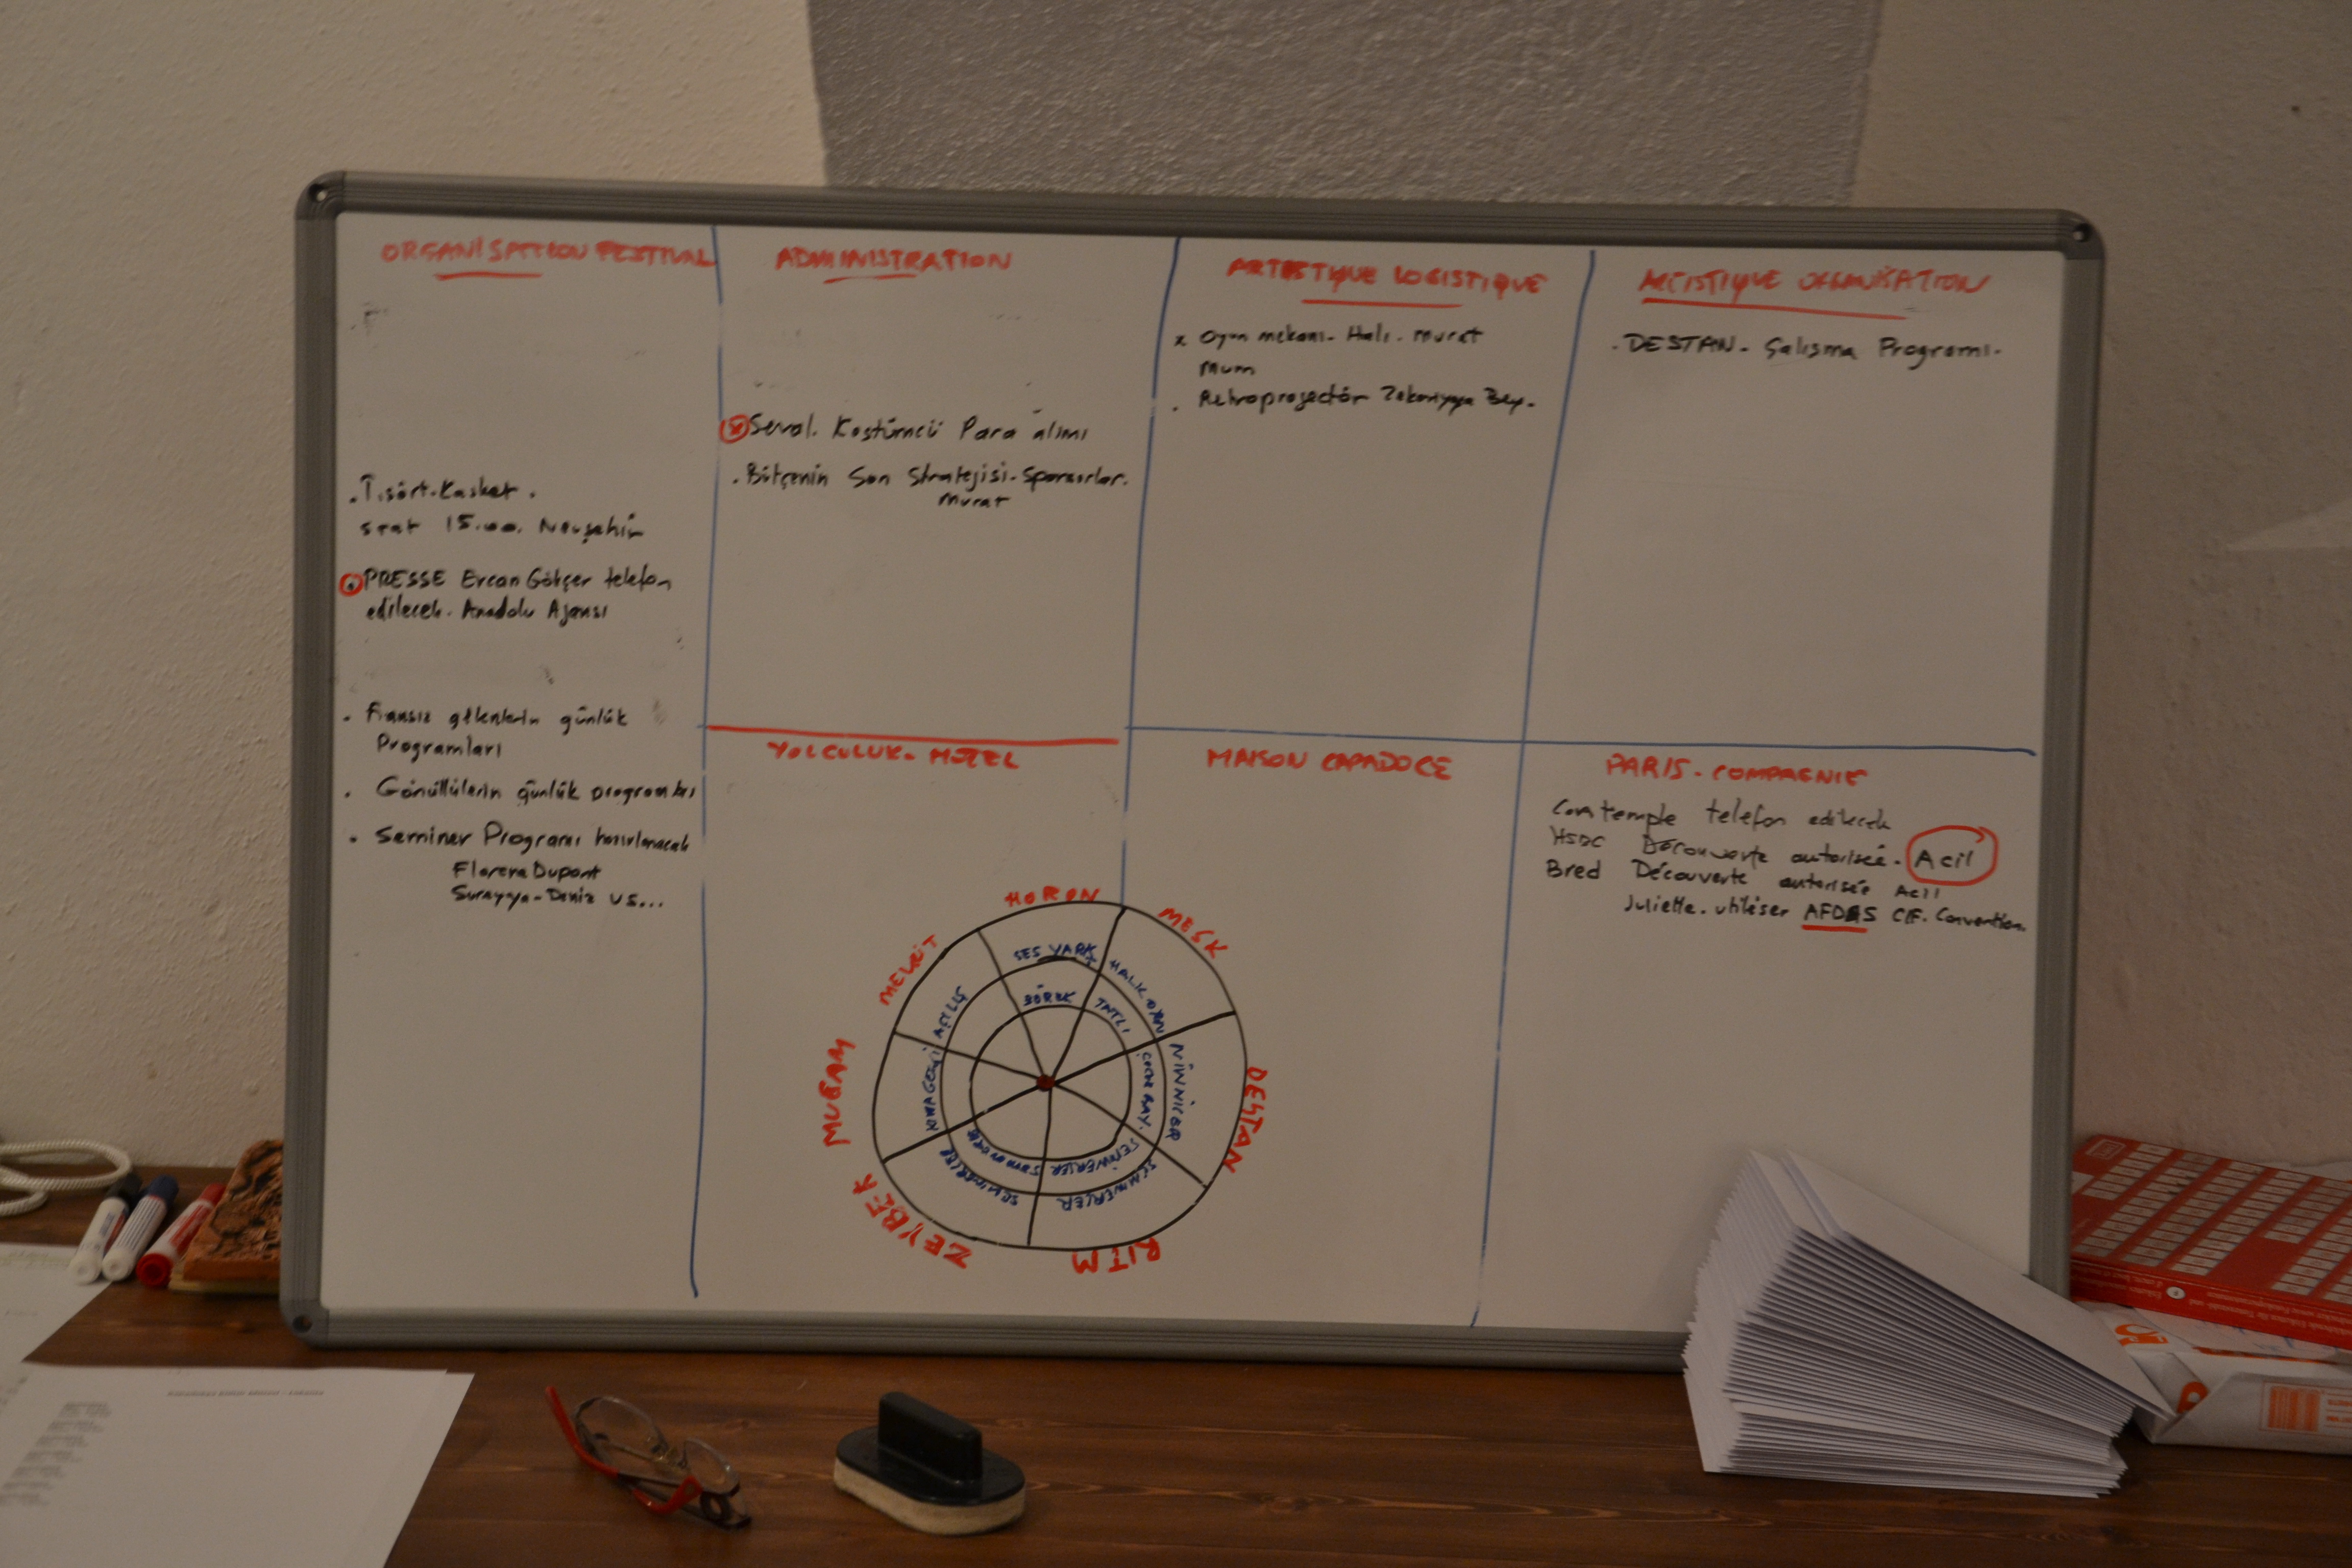 ORGANISATION FESTIVAL
. T.sört-Kasket.
saat 15.00. Nevşehir
. PRESSE Ercan Gökçer telefon
edilecek. Anadolu Ajansı
. Fransız gelenlerin günlük
Programları
. Gönüllülerin günlük programları
. Seminer Programı hazırlanacak
Florence Dupont
Surayya-Deniz US...
ADMINISTRATION
x Seval. Kostümcü Para alımı
. Bütçenin Son Stratejisi-Sponsorlar.
Murat
ARTISTIQUE LOGISTIQUE
x Oyun mekanı- Halı- Murat
Mum
. Retroprojectör Zekeriyya Bey.
ARTISTIQUE ORGANISATION
. DESTAN- Çalışma Programı.
YOLCULUK- HOTEL
MAISON CAPADOCE
PARIS- COMPAGNIE
Contemple telefon edilecek
HSBC Découverte autorisée. Acil
Bred Découverte autorisée Acil
Juliette. utiliser AFDAS CIF. Convention.
HORON
MESK
DESTAN
RITM
ZEYBEK
MUGAM
MEVLÜT
SES YARIŞ
HALK OYN
NİNNİLER
SEMİNERLER
SEMİNERLER
AÇILIŞ
BÖREK
TATLI
ÇOCUK BAY.
SEMİNERLER